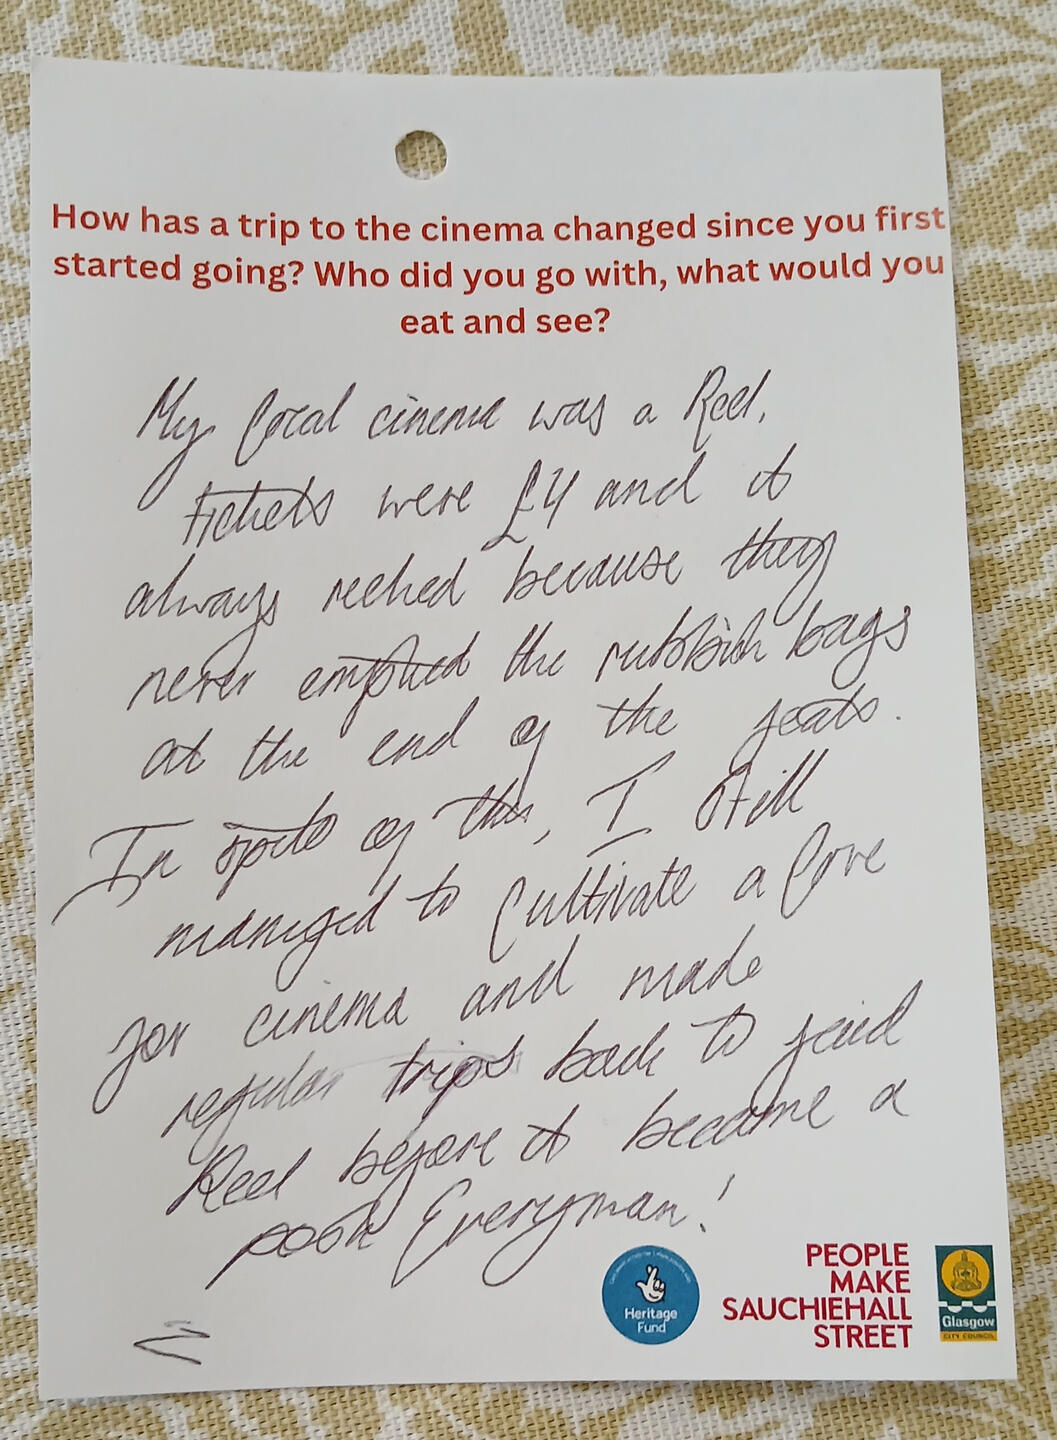 How has a trip to the cinema changed since you first
started going? Who did you go with, what would you
eat and see?
My local cinema was a Reel.
Tickets were £4 and it
always reeked because they
never emptied the rubbish bags
at the end of the seats.
In spite of this, I still
managed to cultivate a love
for cinema and made
regular trips back to said
Reel before it became a
posh Everyman!
Heritage
Fund
PEOPLE
MAKE
SAUCHIEHALL
STREET
Glasgow
CITY COUNCIL